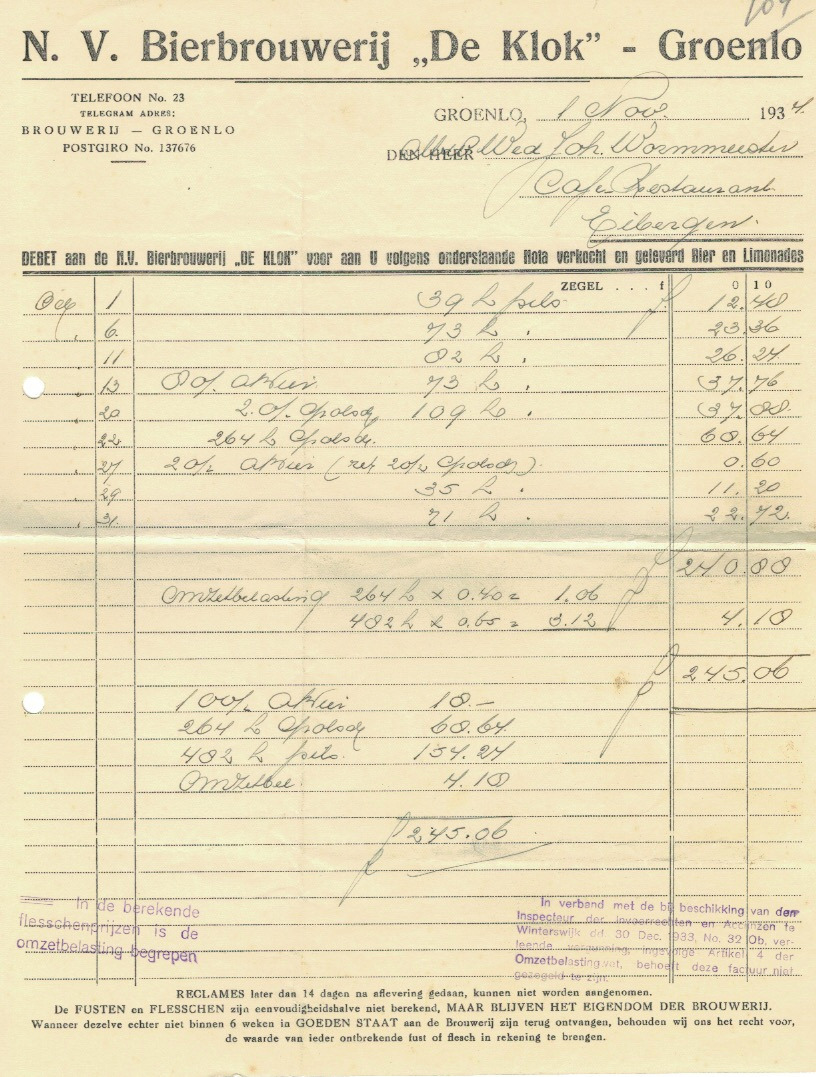 N. V. Bierbrouwerij „De Klok” - Groenlo
TELEFOON No. 23
TELEGRAM ADRES:
BROUWERIJ — GROENLO
POSTGIRO No. 137676
GROENLO, 1 Nov. 1934.
DEN HEER Wed Joh. Wormmeester
Café Restaurant
Eibergen.
DEBET aan de N.V. Bierbrouwerij „DE KLOK” voor aan U volgens onderstaande Nota verkocht en geleverd Bier en Limonades
ZEGEL . . . f 0 10
Oct 1 39 L pils f 12.48
" 6 73 L " 23.36
" 11 82 L " 26.24
" 13 73 L " 37.76
" 20 109 L " 37.88
" 22 264 L 68.64
" 27 0.60
" 29 35 L " 11.20
" 31 71 L " 22.72
f 240.88
Omzetbelasting 264 L x 0.40 = 1.06
482 L x 0.65 = 3.12 f 4.18
f 245.06
18.-
264 L 68.64
482 L pils 154.24
Omzetbel. 4.18
f 245.06
In de berekende
flesschenprijzen is de
omzetbelasting begrepen
In verband met de bij beschikking van den
Inspecteur der Invoerrechten en Accijnzen te
Winterswijk dd. 30 Dec. 1933, No. 32 Ob, ver-
leende vergunning, ingevolge Artikel 4 der
Omzetbelastingwet, behoeft deze factuur niet
gezegeld te zijn.
RECLAMES later dan 14 dagen na aflevering gedaan, kunnen niet worden aangenomen.
De FUSTEN en FLESSCHEN zijn eenvoudigheidshalve niet berekend, MAAR BLIJVEN HET EIGENDOM DER BROUWERIJ.
Wanneer dezelve echter niet binnen 6 weken in GOEDEN STAAT aan de Brouwerij zijn terug ontvangen, behouden wij ons het recht voor,
de waarde van ieder ontbrekende fust of flesch in rekening te brengen.